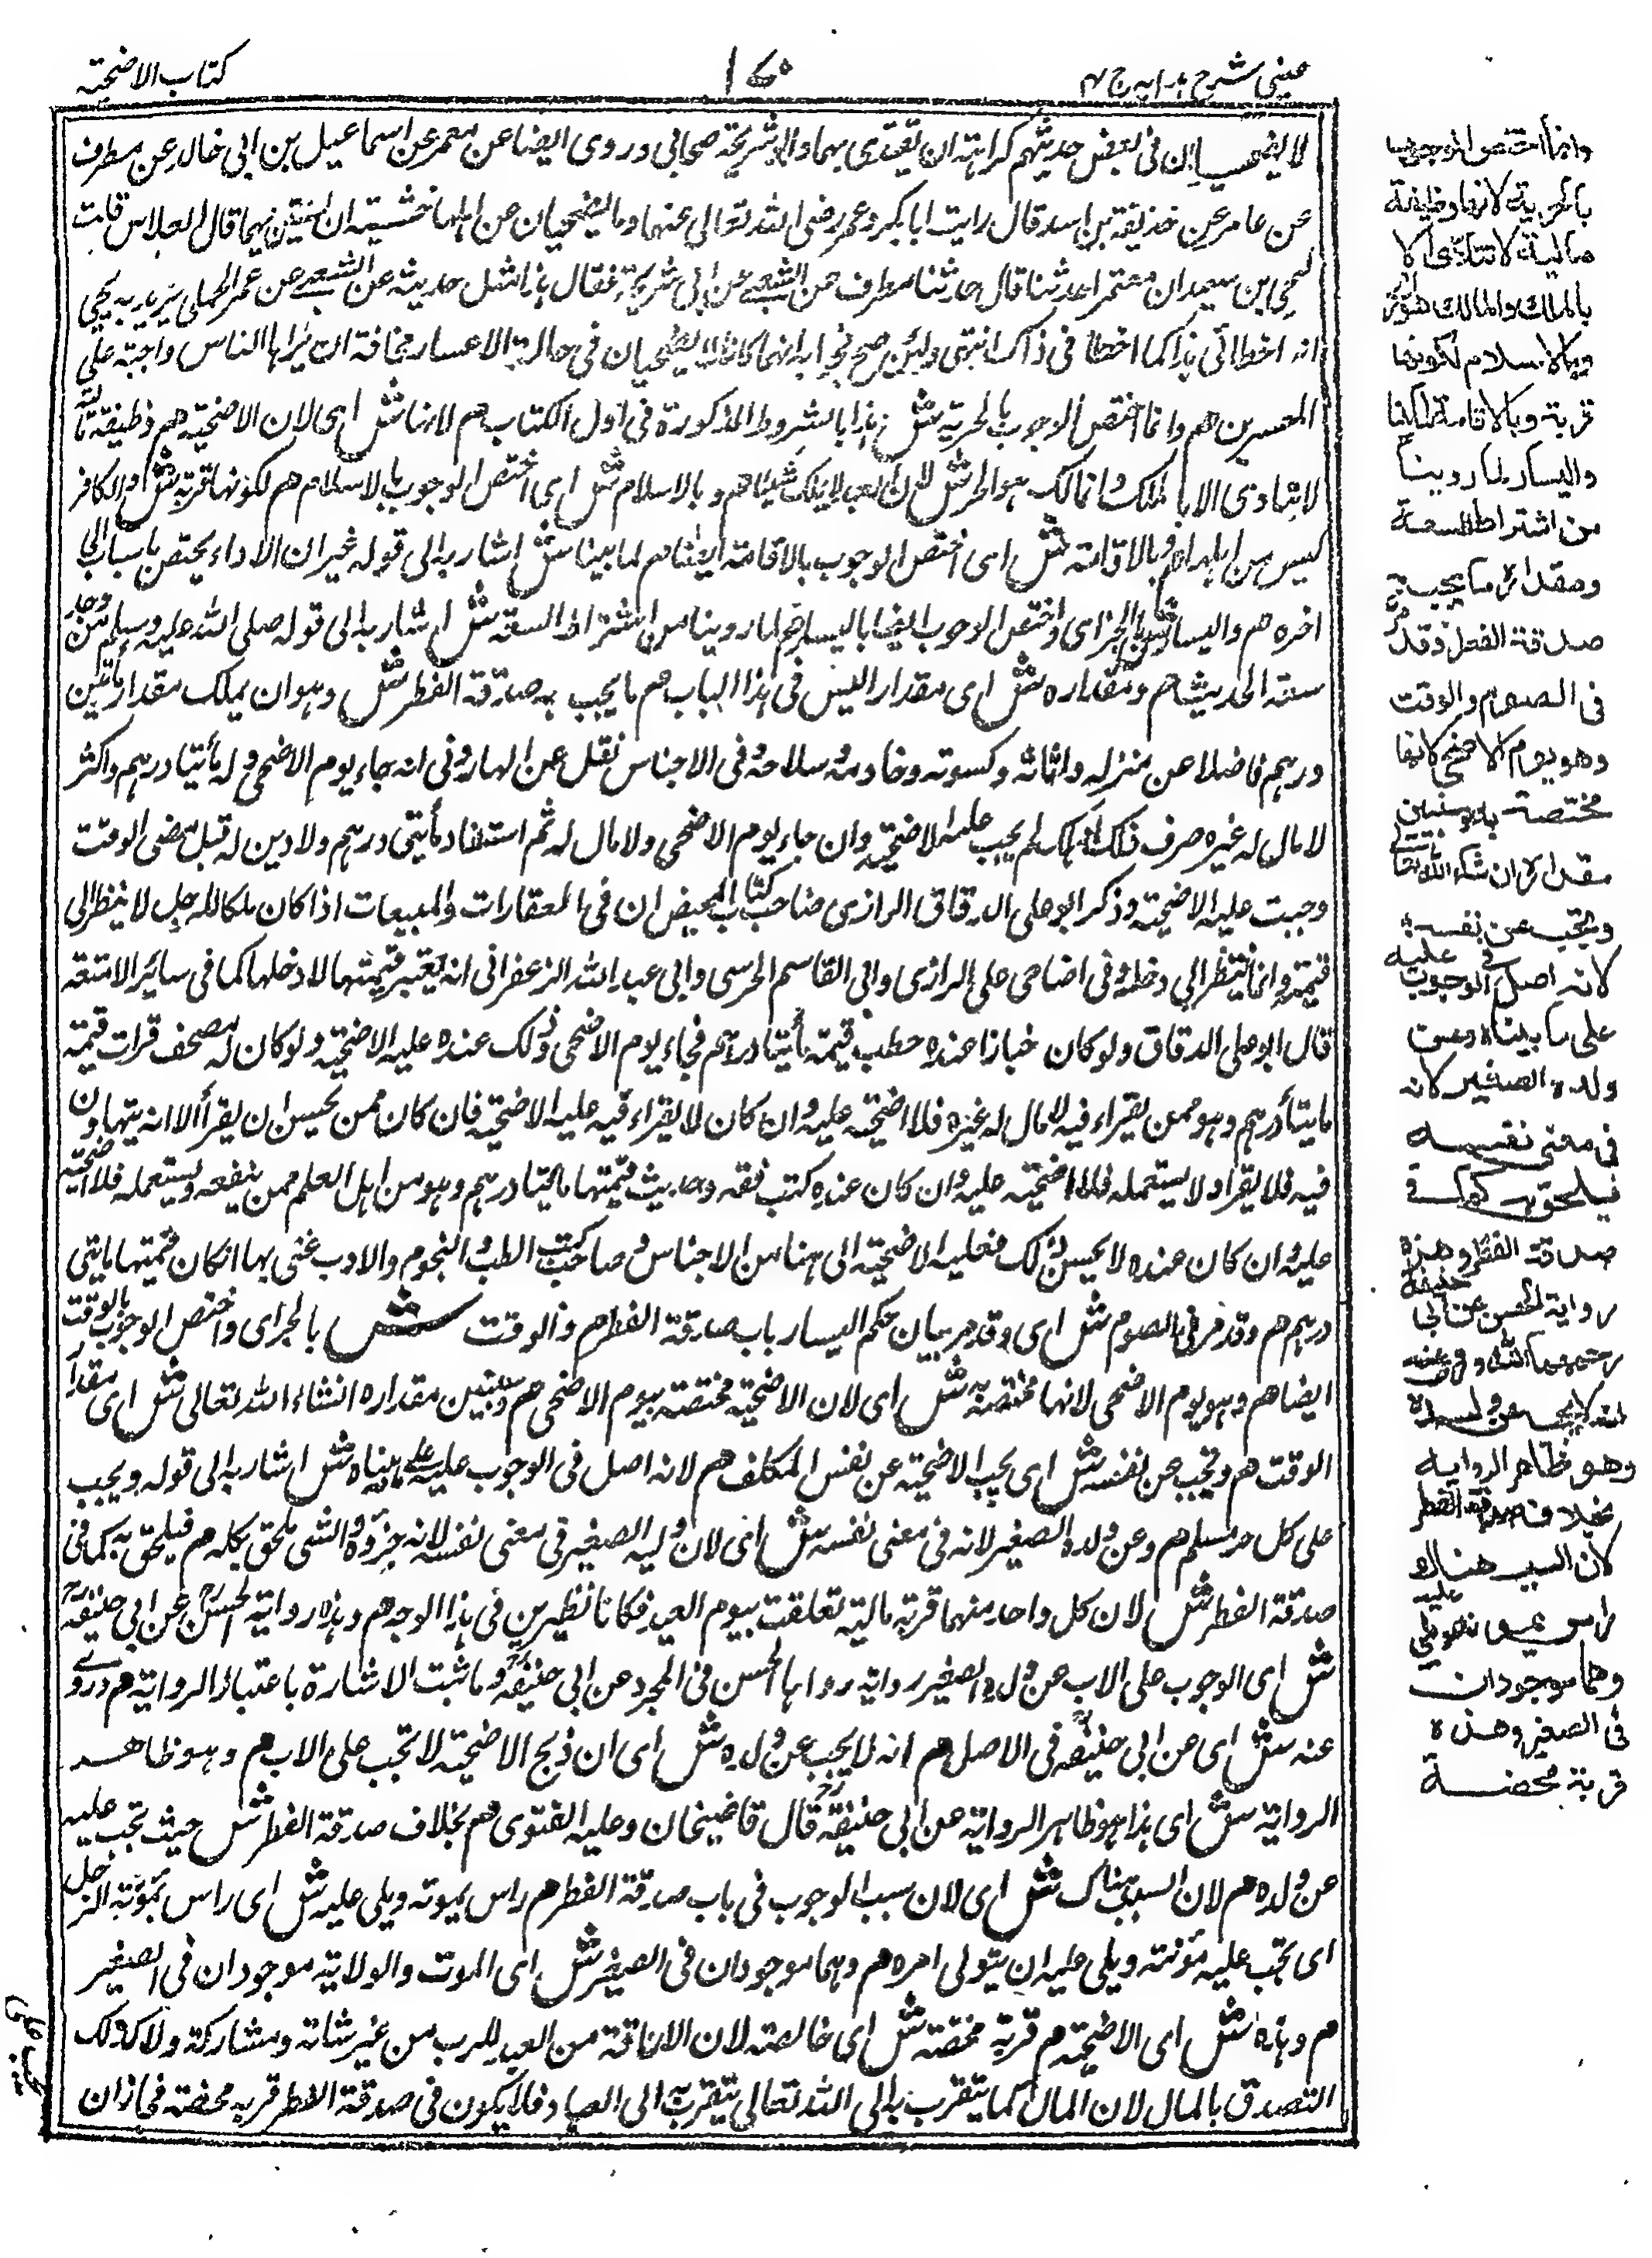 عینی شرح ہدایہ ج ۴
۱۷۵
کتاب الاضحیۃ
لا یضحیان فی بعض حدیثہم کراہتہ ان یقتدی بہما وابو شریحۃ صحابی وروی ایضا عن معمر عن اسماعیل بن ابی خالد عن مطرف
عن عامر عن حذیفۃ بن اسد قال رایت ابا بکر وعمر رضی اللہ تعالی عنہما وما یضحیان عن اہلہما خشیتہ ان یستن بہما قال الفلاس قلت
لیحی بن سعید ان معتمرا حدثنا قال حدثنا مطرف عن الشعبی عن ابی شریحۃ فقال ہذا مثل حدیثہ عن الشعبی عن عمر الجملی یرید بہ یحی
انہ اخطأ فی ہذا کما اخطأ فی ذاک انتہی ولئن صح فجوابہ انہما کانا لا یضحیان فی حالۃ الاعسار مخافۃ ان یراہا الناس واجبۃ علی
المعسرین ہم وانما اختص الوجوب بالحریۃ ش ہذا بالشروط المذکورۃ فی اول الکتاب ہم لانہا ش ای لان الاضحیۃ ہم وظیفۃ مالیۃ
لا یتادی الا بالملک والمالک ہو الحر ش لان العبد لا یملک شیئا ہم وبالاسلام ش ای اختص الوجوب بالاسلام ہم لکونہا قربۃ ش والکافر
لیس من اہلہا ہم وبالاقامتہ ش ای اختص الوجوب بالاقامۃ ایضا ہم لما بینا ش اشار بہ الی قولہ غیر ان الاداء یختص باسباب الی
اخرہ ہم والیسار ش بالجر ای واختص الوجوب ایضا بالیسار ہم لما روینا من اشتراط السعۃ ش اشار بہ الی قولہ صلی اللہ علیہ وسلم من وجد
سعۃ الحدیث ہم ومقدارہ ش ای مقدار الیسر فی ہذا الباب ہم ما یجب بہ صدقۃ الفطر ش وہو ان یملک مقدار مأتین
درہم فاضلا عن منزلہ واثاثہ وکسوتہ وخادمہ وسلاحہ وفی الاجناس نقل عن الہارونی انہ جاء یوم الاضحی ولہ مأتیا درہم واکثر
لا مال لہ غیرہ صرف فہلک لم یجب علیہ الاضحیۃ وان جاء یوم الاضحی ولا مال لہ ثم استفاد مأیتی درہم ولا دین لہ قبل مضی الوقت
وجبت علیہ الاضحیۃ وذکر ابو علی الدقاق الرازی صاحب کتاب الحیض ان فی العقارات والمبیعات اذا کان ملکا للرجل لا ینظر الی
قیمتہ وانما ینظر الی دخلہ وفی اضاحی علی الرازی وابی القاسم الحرسی وابی عبد اللہ الزعفرانی انہ یعتبر قیمتہا لا دخلہا کما فی سائر الامتعۃ
قال ابو علی الدقاق ولو کان خبازا عندہ حطب قیمتہ مأیتا درہم فجاء یوم الاضحی وذلک عندہ علیہ الاضحیۃ ولو کان لہ مصحف قرات قیمتہ
مایتا درہم وہو ممن یقراء فیہ لا مال لہ غیرہ فلا اضحیۃ علیہ وان کان لا یقراء فیہ علیہ الاضحیۃ فان کان ممن یحسن ان یقرأ الا انہ یتہاون
فیہ فلا یقرا ولا یستعملہ فلا اضحیۃ علیہ وان کان عندہ کتب فقہ وحدیث قیمتہا مایتا درہم وہو من اہل العلم ممن ینفعہ ویستعملہ فلا اضحیۃ
علیہ وان کان عندہ لا یحسن ذلک فعلیہ الاضحیۃ الی ہنا من الاجناس وصاحب کتب الطب والنجوم والادب غنی بہا ان کان قیمتہا مایتی
درہم ہم وقد مر فی الصوم ش ای وقد مر بیان حکم الیسار باب صدقۃ الفطر ہم والوقت ش بالجر ای واختص الوجوب بالوقت
ایضا ہم وہو یوم الاضحی لانہا مختصۃ بہ ش ای لان الاضحیۃ مختصۃ بیوم الاضحی ہم وسنبین مقدارہ انشاء اللہ تعالی ش ای مقدار
الوقت ہم وتجب عن نفسہ ش ای یجب الاضحیۃ عن نفس المکلف ہم لانہ اصل فی الوجوب علیہ علی ما بیناہ ش اشار بہ الی قولہ ویجب
علی کل حر مسلم ہم وعن ولدہ الصغیر لانہ فی معنی نفسہ ش ای لان ولیہ الصغیر فی معنی نفسہ لانہ جزؤہ والشی ملحق بکلہ ہم فیلحق بہ کما فی
صدقۃ الفطر ش لان کل واحد منہما قربۃ مالیۃ تعلقت بیوم العید فکانا نظیرین فی ہذا الوجہ ہم وہذہ روایۃ الحسن رح عن ابی حنیفۃ رح
ش ای الوجوب علی الاب عن ولدہ الصغیر روایۃ رواہا الحسن فی المجرد عن ابی حنیفۃ رح وما ثبت الاشارۃ باعتبار الروایۃ ہم وروے
عنہ ش ای عن ابی حنیفۃ رح فی الاصل ہم انہ لا یجب عن ولدہ ش ای ان ذبح الاضحیۃ لا تجب علی الاب ہم وہو ظاہر
الروایۃ ش ای ہذا ہو ظاہر الروایۃ عن ابی حنیفۃ رح قال قاضیخان وعلیہ الفتوی ہم بخلاف صدقۃ الفطر ش حیث تجب علیہ
عن ولدہ ہم لان السبب ہناک ش ای لان سبب الوجوب فی باب صدقۃ الفطر ہم راس یمونہ ویلی علیہ ش ای راس یمونہ الرجل
ای تجب علیہ مؤنتہ ویلی علیہ ان یتولی امرہ ہم وہما موجودان فی الصغیر ش ای الموت والولایۃ موجودان فی الصغیر
ہم وہذہ ش ای الاضحیۃ ہم قربۃ محضۃ ش ای خالصتہ لان الاناقۃ من العبد للرب من غیر شائہ ومشارکۃ ولا کذلک
التصدق بالمال لان المال کما یتقرب بہ الی اللہ تعالی یتقرب بہ الی العباد فلا یکون فی صدقۃ الفطر قربہ محضتہ فجاز ان
وانما اختص الوجوب
بالحریة لانها وظیفة
مالیة لا تتأدی الا
بالملك والمالك هو الحر
وبالاسلام لکونها
قربة وبالاقامة لما بینا
والیسار لما روینا
من اشتراط السعة
ومقداره ما یجب به
صدقة الفطر وقد مر
فی الصوم والوقت
وهو یوم الاضحی لانها
مختصة به وسنبین
مقداره ان شاء الله تعالی
وتجب عن نفسه
لانه اصل فی الوجوب علیه
علی ما بیناه وعن
ولده الصغیر لانه
فی معنی نفسه
فیلحق به کما فی
صدقة الفطر وهذه
روایة الحسن عن ابی حنیفة
رحمهما الله وروی عنه
انه لا یجب عن ولده
وهو ظاهر الروایة
بخلاف صدقة الفطر
لان السبب هناك
راس یمونه ویلی علیه
وهما موجودان
فی الصغیر وهذه
قربة محضة